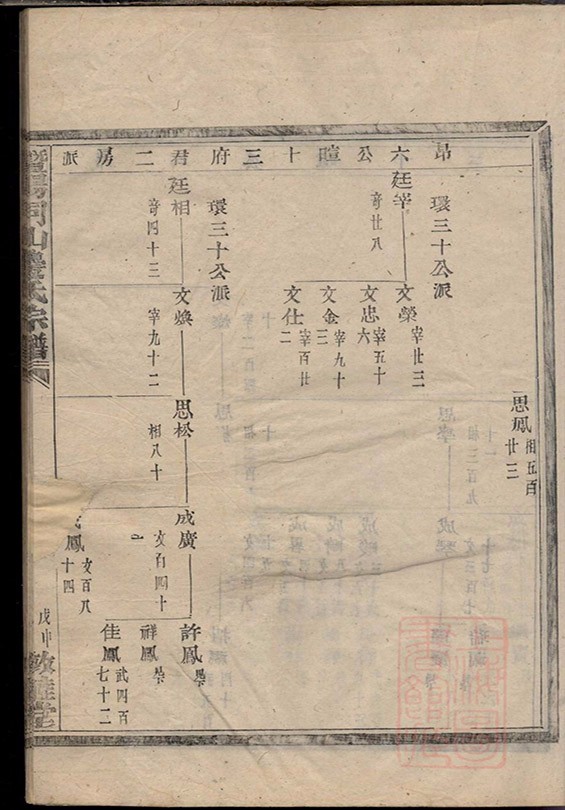 昂六公暄十三府君二房派
思鳳 相五百廿三
環三十公派
廷宰 奇廿八
文榮 宰廿三
文忠 宰五十六
文金 宰九十三
文仕 宰百廿二
環三十公派
廷相 奇四十三
文煥 宰九十二
思松 相八十
成廣 文百四十一
許鳳
祥鳳
佳鳳 武四百七十二
鳳 文百八十四
氏宗譜
戊申 敦睦堂